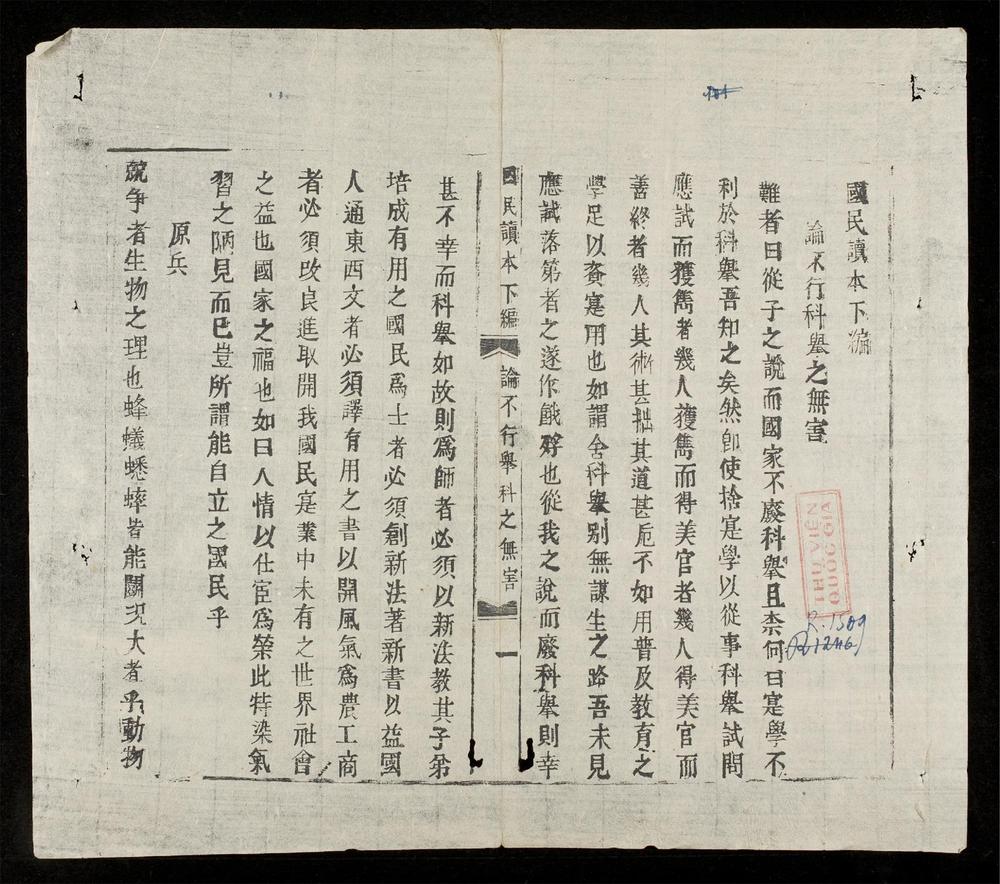 國民讀本下編
論不行科舉之無害
難者曰從子之說而國家不廢科舉且柰何曰寔學不
利於科舉吾知之矣然卽使捨寔學以從事科舉試問
應試而獲雋者幾人獲雋而得美官者幾人得美官而
善終者幾人其術甚拙其道甚厄不如用普及教育之
學足以資寔用也如謂舍科舉别無謀生之路吾未見
應試落第者之遂作餓殍也從我之說而廢科舉則幸
國民讀本下編 論不行舉科之無害 一
甚不幸而科舉如故則爲師者必須以新法教其子弟
培成有用之國民爲士者必須創新法著新書以益國
人通東西文者必須譯有用之書以開風氣爲農工商
者必須改良進取開我國民寔業中未有之世界社會
之益也國家之福也如曰人情以仕宦爲榮此特染氣
習之陋見而已豈所謂能自立之國民乎
原兵
競争者生物之理也蜂蟻蟋蟀皆能鬭况大者乎動物
THƯ VIỆN
QUỐC GIA
R.1509
R1246